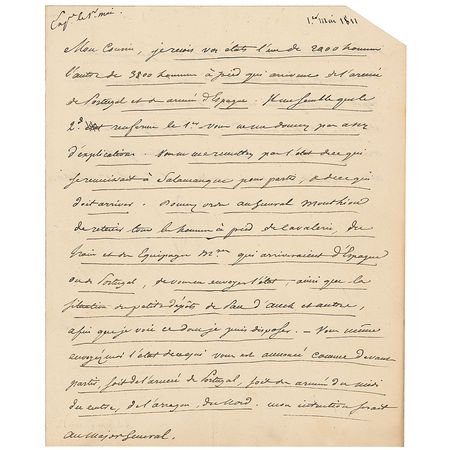 Exp. le 1er mai
1er Mai 1811
Mon Cousin, je reçois vos états l'un de 2200 hommes
l'autre de 3800 hommes à pied qui arrivent de l'armée
de Portugal et des armées d'Espagne. Il me semble que le
2d renferme le 1er. Vous ne me donnez pas assez
d'explications. Vous ne me remettez pas l'état de ce qui
se réunissait à Salamanque pour partir, et de ce qui
doit arriver. Donnez ordre au Général Monthion
de retenir tous les hommes à pied de cavalerie, du
train et des Equipages Mres qui arriveraient d'Espagne
ou de Portugal, de vous en envoyer l'état; ainsi que la
situation des petits dépôts de Pau d'Auch et autres,
afin que je voie ce dont je puis disposer. – Vous même
envoyez moi l'état de ce qui vous est annoncé comme devant
partir, soit de l'armée de Portugal, soit des armées du midi
du centre, de l'arragon, du Nord. mon intention serait
au Major Général.